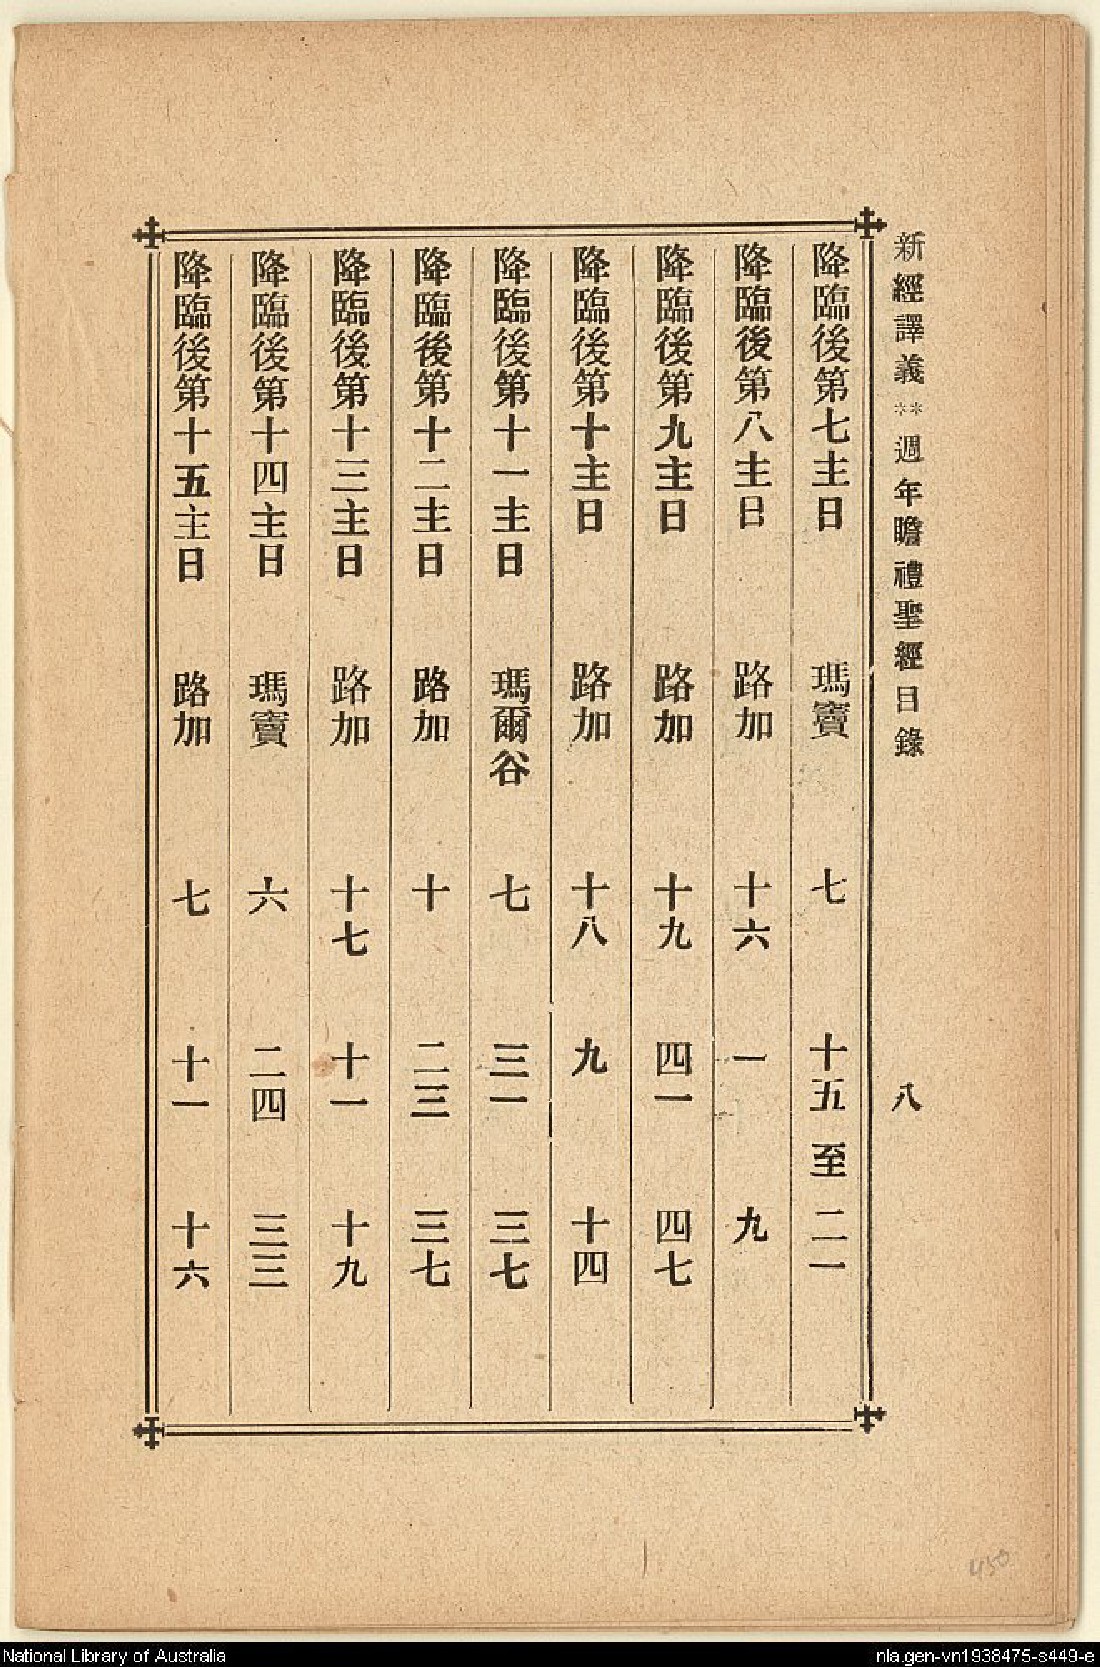 新經譯義**週年瞻禮聖經目錄 八
降臨後第七主日 瑪竇 七 十五至二一
降臨後第八主日 路加 十六 一 九
降臨後第九主日 路加 十九 四一 四七
降臨後第十主日 路加 十八 九 十四
降臨後第十一主日 瑪爾谷 七 三一 三七
降臨後第十二主日 路加 十 二三 三七
降臨後第十三主日 路加 十七 十一 十九
降臨後第十四主日 瑪竇 六 二四 三三
降臨後第十五主日 路加 七 十一 十六
450
National Library of Australia
nla.gen-vn1938475-s449-e